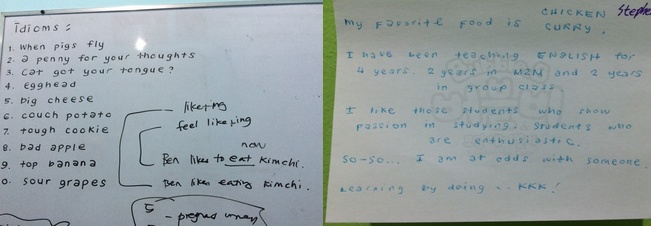 Idioms :
1. When pigs fly
2. a penny for your thoughts
3. Cat got your tongue?
4. egghead
5. big cheese
6. couch potato
7. tough cookie
8. bad apple
9. top banana
0. sour grapes
like+ing
feel like+ing
now
Ben likes to eat kimchi.
Ben likes eating kimchi.
5
- pregnas women
CHICKEN Stephe
my favorite food is CURRY.
I have been teaching ENGLISH for
4 years. 2 years in M2M and 2 years
in group class
I like those students who show
passion in studying. students who
are enthusiastic.
SO-SO... I am at odds with someone.
Learning by doing... KKK!